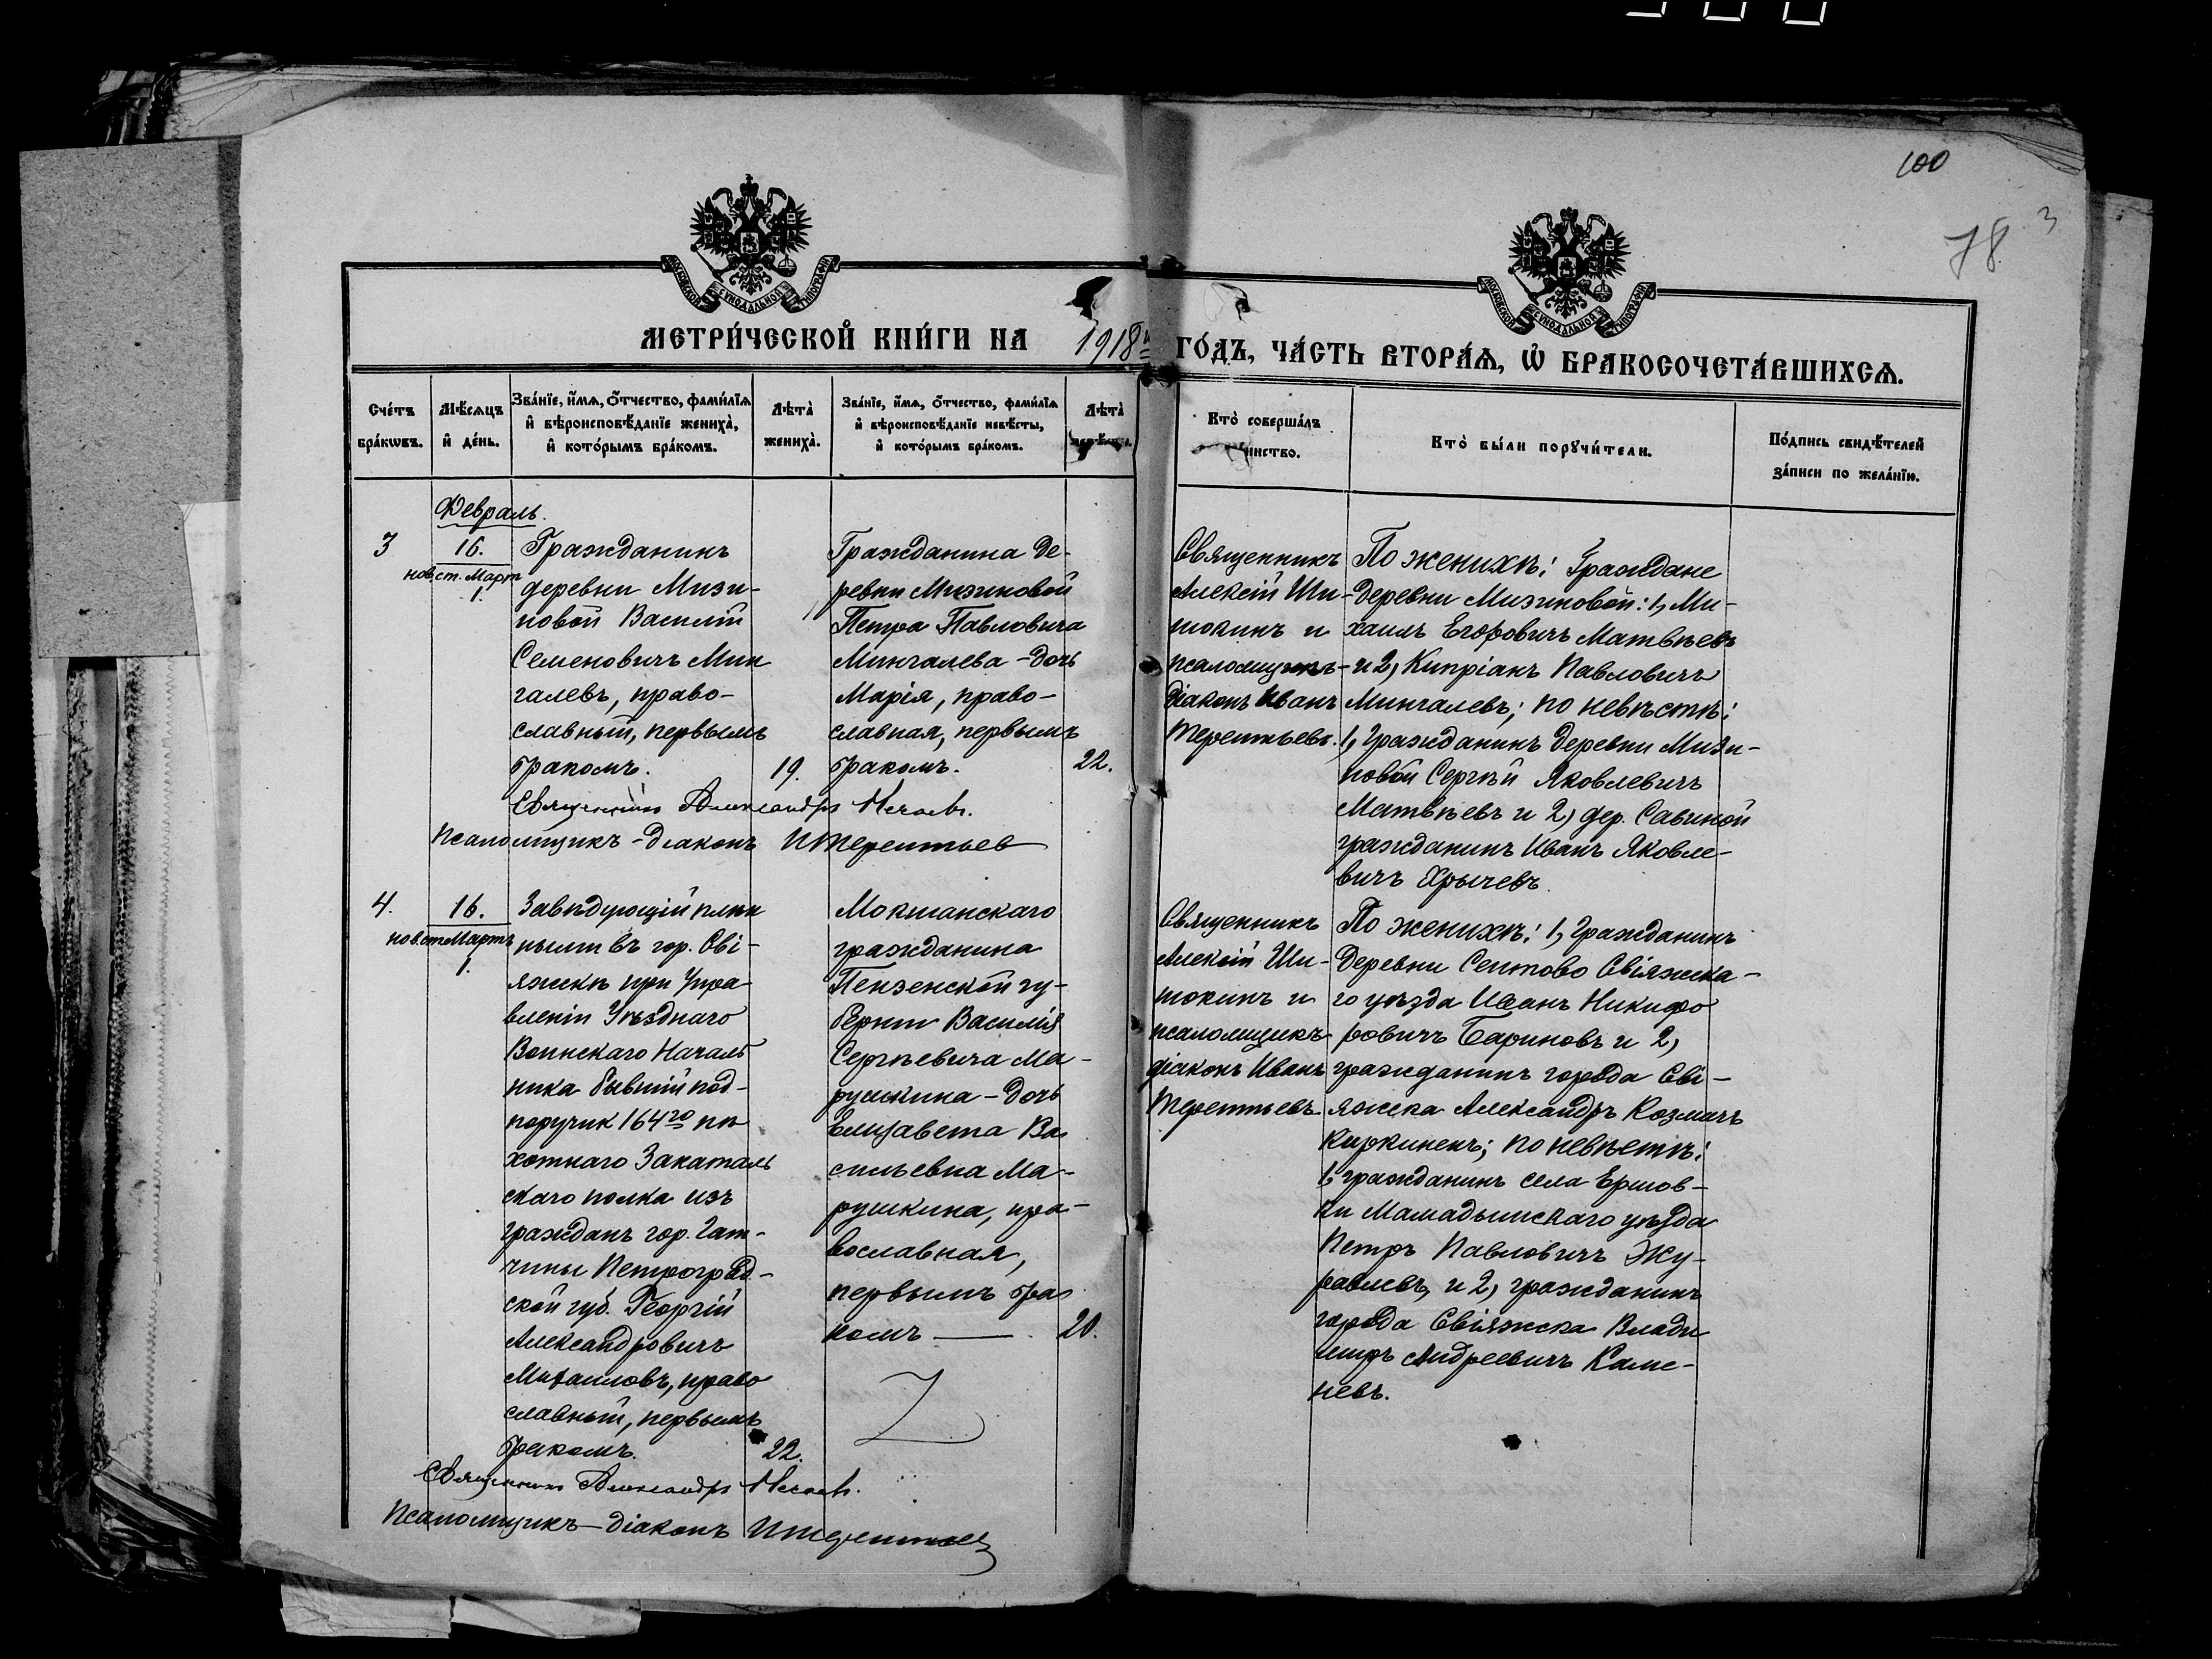 100
78.
3
МОСКОВСКОЙ СѴНОДАЛЬНОЙ ТИПОГРАФІИ
МОСКОВСКОЙ СѴНОДАЛЬНОЙ ТИПОГРАФІИ
МЕТРИ́ЧЕСКОЙ КНИ́ГИ НА 1918й ГО́ДЪ, ЧА́СТЬ ВТОРА́Ѧ, Ѡ҆ БРАКОСОЧЕТА́ВШИХСѦ.
Сче́тъ бра́кѡвъ.
Мѣ́сѧцъ и҆ де́нь.
Зва́нїе, и҆́мѧ, ѻ҆́тчество, фамн́лїѧ
и҆ вѣроисповѣ́данїе жениха̀,
и҆ кото́рымъ бра́комъ.
Лѣта̀ жениха̀.
Зва́нїе, и҆́мѧ, ѻ҆́тчество, фамн́лїѧ
и҆ вѣроисповѣ́данїе невѣ́сты,
и҆ кото́рымъ бра́комъ.
Лѣта̀
Кто̀ соверша́лъ
Кто̀ бы́ли порꙋчи́тели.
По́дпись свидѣ́телей
за́писи по жела́нїю.
Февраль.
3
16.
нов. ст. Март
1.
Гражданинъ
деревни Мизи-
новой Василій
Семеновичъ Мин
галевъ, право-
славный, первымъ
бракомъ.
19.
Гражданина де-
ревни Мизиновой
Петра Павловича
Мингалева - дочь
Марія, право-
славная, первымъ
бракомъ.
22.
Священникъ
Алексій Ши-
шокинъ и
псаломщикъ-
діаконъ Иванъ
Терентьевъ.
По женихѣ: Граждане
деревни Мизиновой: 1, Ми-
хаилъ Егоровичъ Матвѣевъ
и 2, Кипріанъ Павловичъ
Мингалевъ; по невѣстѣ:
1, гражданинъ деревни Мизи-
новой Сергѣй Яковлевичъ
Матвѣевъ и 2, дер. Савиной
гражданинъ Иванъ Яковле-
вичъ Хрычевъ.
Священникъ Александръ Нечаевъ.
Псаломщикъ - діаконъ И Терентьев
4.
16.
нов. ст. Мартъ
1.
Завѣдующій плѣн
ными въ гор. Сві-
яжскѣ при Упра
вленіи Уѣзднаго
Воинскаго Началь
ника бывшій под-
поручик 164го пѣ
хотнаго Закаталь
скаго полка изъ
гражданъ гор. Гат-
чины Петроград-
ской губ. Георгій
Александровичъ
Михаиловъ, право
славный, первымъ
бракомъ.
22.
Мокшанскаго
гражданина
Пензенской гу-
берніи Василія
Сергѣевича Ма-
рушкина - дочь
Елизавета Ва
сильевна Ма-
рушкина, пра-
вославная,
первымъ бра
комъ —
20.
Священникъ
Алексій Ши-
шокинъ и
псаломщикъ-
діаконъ Иванъ
Терентьевъ.
По женихѣ: 1, Гражданинъ
деревни Сеитово Свіяжска-
го уѣзда Иванъ Никифо
ровичъ Бариновъ и 2,
гражданинъ города Сві-
яжска Александръ Козмичъ
Киркинекъ; по невѣстѣ:
1, гражданинъ села Ершов-
ки Мамадышскаго уѣзда
Петръ Павловичъ Жу-
равлевъ, и 2, гражданинъ
города Свіяжска Влади
миръ Андреевичъ Каме-
невъ.
Священникъ Александръ Нечаевъ.
Псаломщикъ - діаконъ И Терентьев